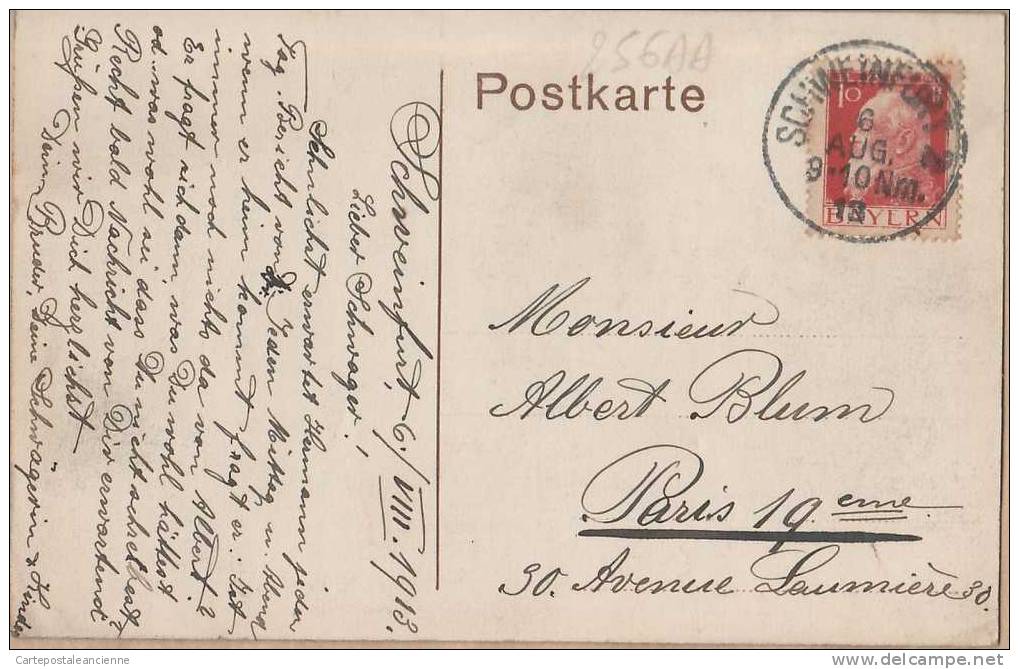 256AA
Postkarte
SCHWEINFURT 2
6
AUG.
9-10 Nm.
13
10
BAYERN
Schweinfurt, 6./VIII. 1913.
Lieber Schwager!
Sehnlichst erwartet Hermann jeden
Tag Bericht von Dir. Jeden Mittag u. Abend
wenn er heim kommt fragt er: Ist
immer noch nichts da von Albert?
Er fragt sich dann, was Du wohl hättest
od. was wohl sei dass Du nicht schreibest?
Recht bald Nachricht von Dir erwartend
Grüssen wir Dich herzlichst
Dein Bruder, Deine Schwägerin & Kinder
Monsieur
Albert Blum
Paris 19eme
30. Avenue Laumière 30.
Cartepostaleancienne
www.delcampe.net